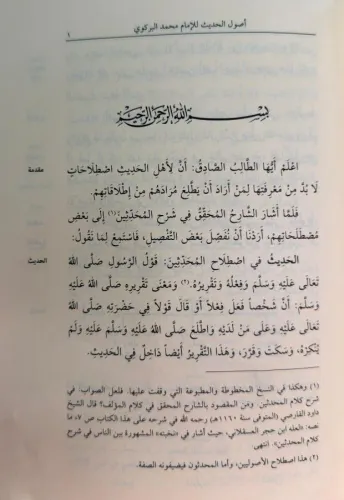 أصول الحديث للإمام محمد البركوي
١
بسم الله الرحمن الرحيم
مقدمة
اعْلَمْ أَيُّهَا الطَّالِبُ الصَّادِقُ: أَنَّ لِأَهْلِ الحَدِيثِ اصْطِلَاحَاتٍ
لَا بُدَّ مِنْ مَعْرِفَتِهَا لِمَنْ أَرَادَ أَنْ يَطَّلِعَ مُرَادَهُمْ مِنْ إِطْلَاقَاتِهِمْ.
فَلَمَّا أَشَارَ الشَّارِحُ المُحَقِّقُ فِي شَرْحِ المُحَدِّثِينَ(١) إِلَى بَعْضِ
مُصْطَلَحَاتِهِمْ، أَرَدْنَا أَنْ نُفَصِّلَ بَعْضَ التَّفْصِيلِ، فَاسْتَمِعْ لِمَا نَقُولُ:
الحديث
الحَدِيثُ فِي اصْطِلَاحِ المُحَدِّثِينَ: قَوْلُ الرَّسُولِ صَلَّى اللهُ
تَعَالَى عَلَيْهِ وَسَلَّمَ وَفِعْلُهُ وَتَقْرِيرُهُ.(٢) وَمَعْنَى تَقْرِيرِهِ صَلَّى اللهُ عَلَيْهِ
وَسَلَّمَ: أَنَّ شَخْصاً فَعَلَ فِعْلاً أَوْ قَالَ قَوْلاً فِي حَضْرَتِهِ صَلَّى اللهُ
تَعَالَى عَلَيْهِ وَعَلَى مَنْ لَدَيْهِ وَاطَّلَعَ صَلَّى اللهُ عَلَيْهِ وَسَلَّمَ عَلَيْهِ وَلَمْ
يُنْكِرْهُ، وَسَكَتَ وَقَرَّرَ، وَهَذَا التَّقْرِيرُ أَيْضاً دَاخِلٌ فِي الحَدِيثِ.
(١) وهكذا في النسخ المخطوطة والمطبوعة التي وقفت عليها. فلعل الصواب: في
شرح كلام المحدثين. ومن المقصود بالشارح المحقق في كلام المؤلف؟ قال الشيخ
داود القارصي (المتوفى سنة ١١٦٠هـ) رحمه الله في شرحه على هذا الكتاب ص ٧، ما
نصه: «لعله ابن حجر العسقلاني، حيث أشار في «نخبته» المشهورة بين الناس في شرح
كلام المحدثين». انتهى.
(٢) هذا اصطلاح الأصوليين، وأما المحدثون فيضيفونه الصفة.